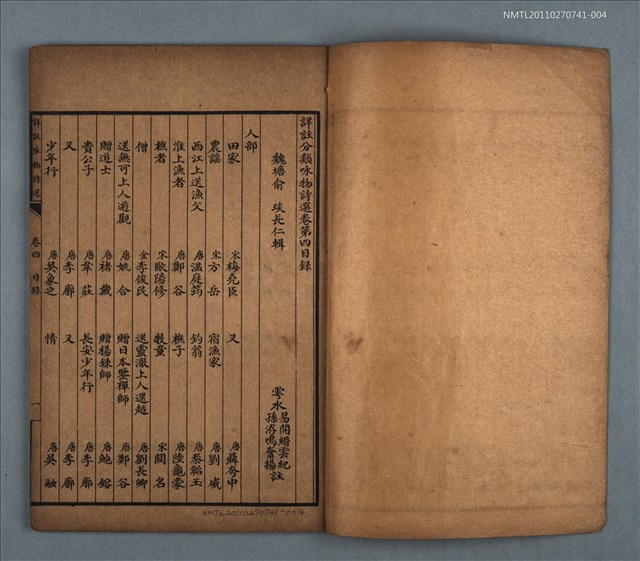 NMTL20110270741-004
詳註分類咏物詩選卷第四目錄
魏塘俞 琰長仁輯
雩水易開縉雲紀
孫洊鳴奮揚註
人部
田家 宋梅堯臣 又 唐聶夷中
農謠 宋方岳 宿漁家 唐劉威
西江上送漁父 唐溫庭筠 釣翁 唐秦韜玉
淮上漁者 唐鄭谷 樵子 唐陸龜蒙
樵者 宋歐陽修 牧童 宋闕名
僧 金李俊民 送靈澈上人還越 唐劉長卿
送無可上人遊觀 唐姚合 贈日本鑒禪師 唐鄭谷
贈道士 唐褚載 贈楊鍊師 唐鮑鎔
貴公子 唐韋莊 長安少年行 唐李廓
又 唐李廓 又 唐李廓
少年行 唐吳象之 情 唐吳融
詳註咏物詩選 卷四 目錄 一
NMTL20110270741-004